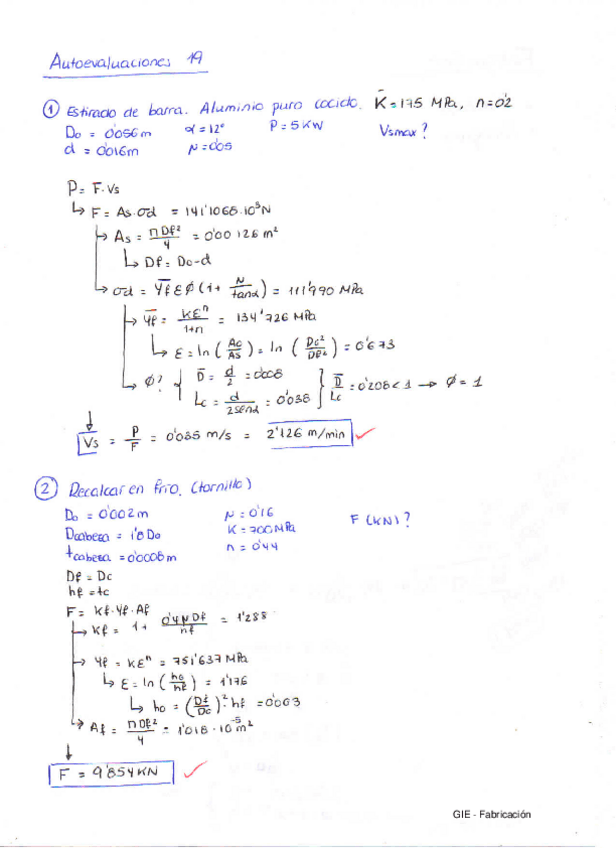 Autoevaluaciones 19
① Estirado de barra. Aluminio puro cocido. K̄=175 MPa, n=0'2
Do = 0'056m α=12° P=5KW Vsmax?
d = 0'016m N=0'05
P= F.Vs
↳ F= As.σd = 141'1068.10³N
↳ As = πDf²/4 = 0'00126 m²
↳ Df= Do-d
↳ σd = Ȳf ε ϕ (1+ N/tanα) = 111'990 MPa
↳ Ȳf = Kεⁿ/1+n = 134'726 MPa
↳ ε=ln(Ao/As)=ln(Do²/Df²)=0'673
↳ ϕ? { D̄ = d/2 = 0'008
Lc = d/2senα = 0'038 } D̄/Lc = 0'208<1 → ϕ=1
↓
Vs = P/F = 0'035 m/s = 2'126 m/min ✓
② Recalcar en frío. (tornillo)
Do = 0'002m N=0'16 F(KN)?
Dcabeza = 1'8 Do K=700MPa
tcabeza = 0'0008m n=0'44
Df = Dc
hf = tc
F= Kf.Yf.Af
↳ Kf = 1+ 0'4NDf/hf = 1'288
↳ Yf = Kεⁿ = 751'637 MPa
↳ ε=ln(ho/hf) = 1'176
↳ ho = (Df/Do)².hf = 0'003
↳ Af = πDf²/4 = 1'018.10⁻⁵m²
↓
F = 9'854KN ✓
GIE - Fabricación